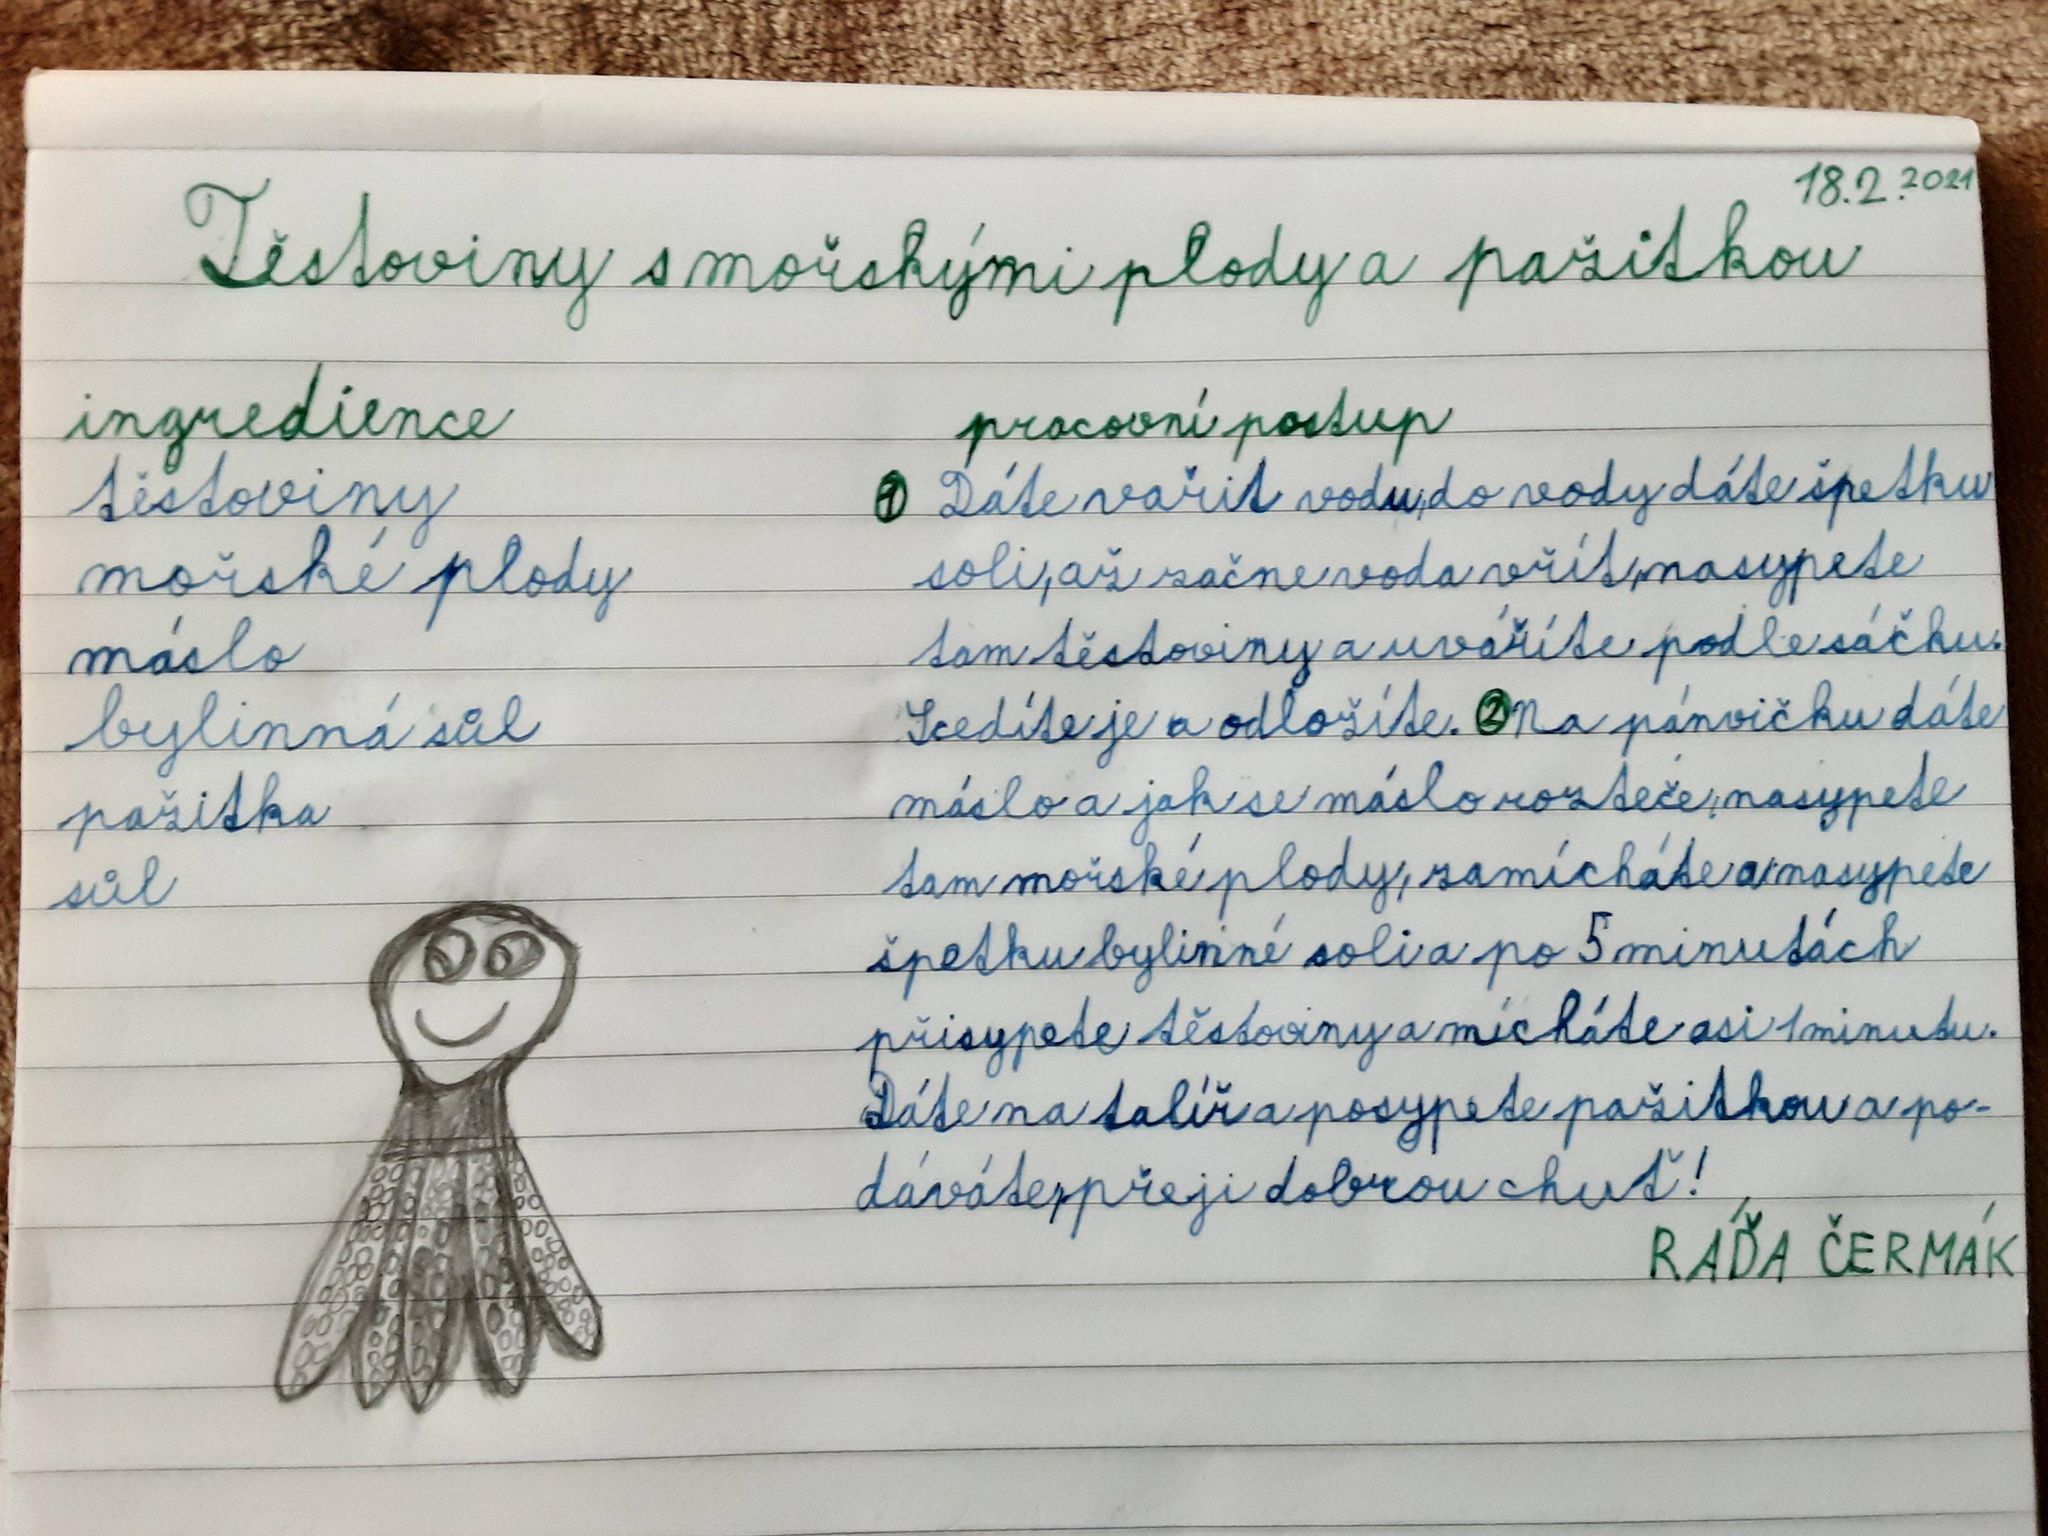 18.2.2021
Těstoviny s mořskými plody a pažitkou
ingredience
těstoviny
mořské plody
máslo
bylinná sůl
pažitka
sůl
pracovní postup
1 Dáte vařit vodu, do vody dáte špetku
soli, až začne voda vřít, nasypete
tam těstoviny a uváříte podle sáčku.
Scedíte je a odložíte. 2 Na pánvičku dáte
máslo a jak se máslo rozteče, nasypete
tam mořské plody, zamícháte a nasypete
špetku bylinné soli a po 5 minutách
přisypete těstoviny a mícháte asi 1 minutu.
Dáte na talíř a posypete pažitkou a po-
dáváte, přeji dobrou chuť!
RÁĎA ČERMÁK